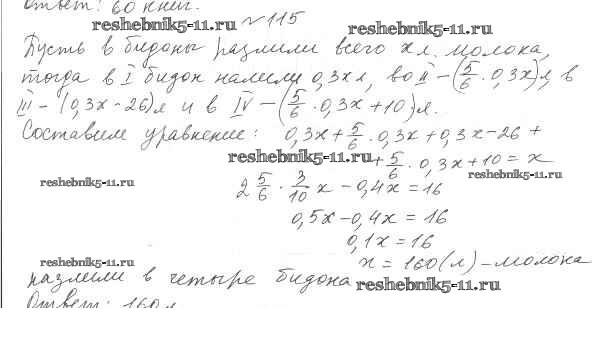 Ответ: 60 книг.
reshebnik5-11.ru №115 reshebnik5-11.ru
Пусть в бидоны разлили всего x л. молока,
тогда в I бидон налили 0,3x л, во II – (5/6 · 0,3x) л, в
III – (0,3x – 26) л и в IV – (5/6 · 0,3x + 10) л.
Составим уравнение: 0,3x + 5/6 · 0,3x + 0,3x – 26 +
reshebnik5-11.ru + 5/6 · 0,3x + 10 = x
reshebnik5-11.ru 2 5/6 · 3/10 x – 0,4x = 16 reshebnik5-11.ru
0,5x – 0,4x = 16
0,1x = 16
reshebnik5-11.ru x = 160 (л) – молока
разлили в четыре бидона reshebnik5-11.ru
Ответ: 160 л